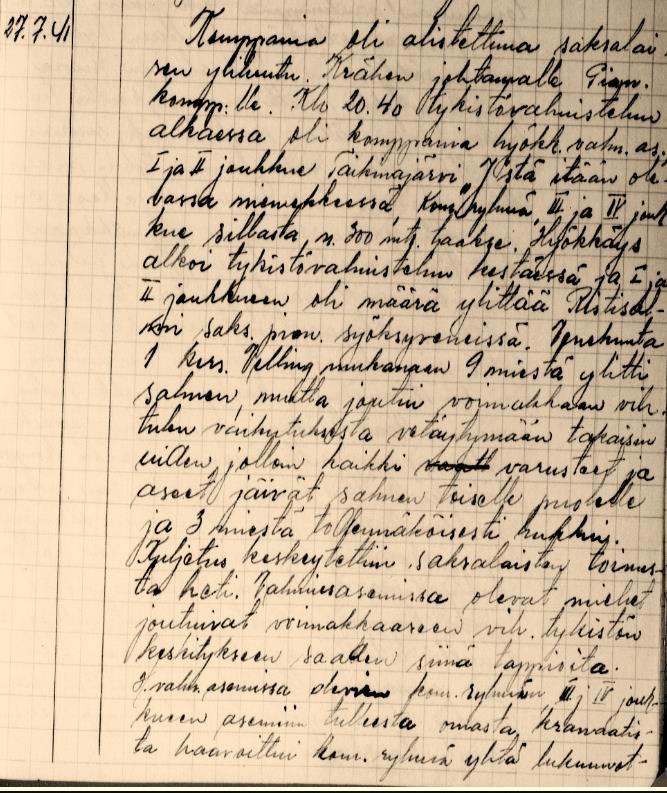 27.7.41 Komppania oli alistettuna saksalai-
sen yliluutn. Krähen johtamalle Pion.
komp:lle. Klo 20.40 tykistövalmistelun
alkaessa oli komppania hyökk.valm.as.
I ja II joukkue Täikinäjärvi I:stä itään ole-
vassa niemekkeessä, Kom.ryhmä, III ja IV jouk-
kue sillasta n. 300 mtr. taakse. Hyökkäys
alkoi tykistövalmistelun kestäessä ja I ja
II joukkueen oli määrä ylittää Ristisal-
mi saks. pion. syöksyveneissä. Venekunta
1 kers. Velling mukanaan 9 miestä ylitti
salmen, mutta joutui voimakkaan vih.
tulen vaikutuksesta vetäytymään takaisin
uiden, jolloin kaikki varusteet ja
aseet jäivät salmen toiselle puolelle
ja 3 miestä todennäköisesti hukkui.
Kuljetus keskeytettiin saksalaisten toimes-
ta heti. Valmiusasemissa olevat miehet
joutuivat voimakkaaseen vih. tykistön
keskitykseen saaden siinä tappioita.
valm.asemissa olevien kom.ryhmän, III j IV jouk-
kueen asemiin tulleesta omasta kranaatis-
ta haavoittui kom. ryhmä yhtä lukuunot-